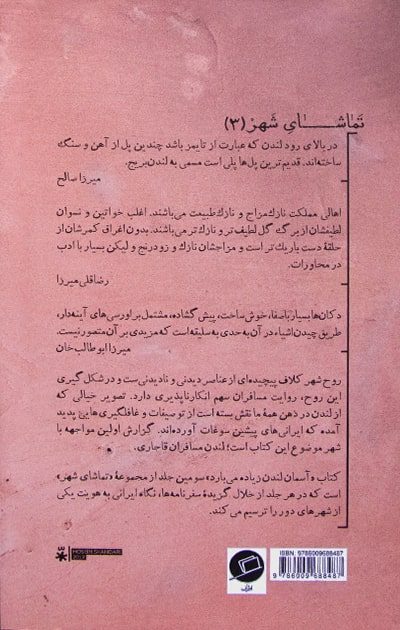 تماشای شهر (۳)
در بالای رود لندن که عبارت از تایمز باشد چندین پل از آهن و سنگ
ساخته‌اند. قدیم‌ترین پل‌ها پلی است مسمی به لندن بریج.
میرزا صالح
اهالی مملکت نازک مزاج و نازک طبیعت می‌باشند. اغلب خواتین و نسوان
لطیفشان از برگ گل لطیف‌تر و نازک‌تر می‌باشند. بدون اغراق کمرشان از
حلقهٔ دست باریک‌تر است و مزاجشان نازک و زودرنج و لیکن بسیار با ادب
در محاورات.
رضاقلی میرزا
دکان‌ها بسیار باصفا، خوش‌ساخت، پیش گشاده، مشتمل بر اورسی‌های آینه‌دار،
طریق چیدن اشیاء در آن به حدی به سلیقه است که مزیدی بر آن متصور نیست.
میرزا ابوطالب خان
روح شهر کلاف پیچیده‌ای از عناصر دیدنی و نادیدنی ست و در شکل گیری
این روح، روایت مسافران سهم انکارناپذیری دارد. تصویر خیالی که
از لندن در ذهن همهٔ ما نقش بسته است از توصیفات و غافلگیری‌هایی پدید
آمده که ایرانی‌های پیشین سوغات آورده‌اند. گزارش اولین مواجهه با
شهر موضوع این کتاب است؛ لندن مسافران قاجاری.
کتاب «آسمان لندن زیاده می‌بارد» سومین جلد از مجموعهٔ «تماشای شهر»
است که در هر جلد از خلال گزیدهٔ سفرنامه‌ها، نگاه ایرانی به هویت یکی
از شهرهای دور را ترسیم می کند.
ISBN: 9786009688487
9 786009 688487